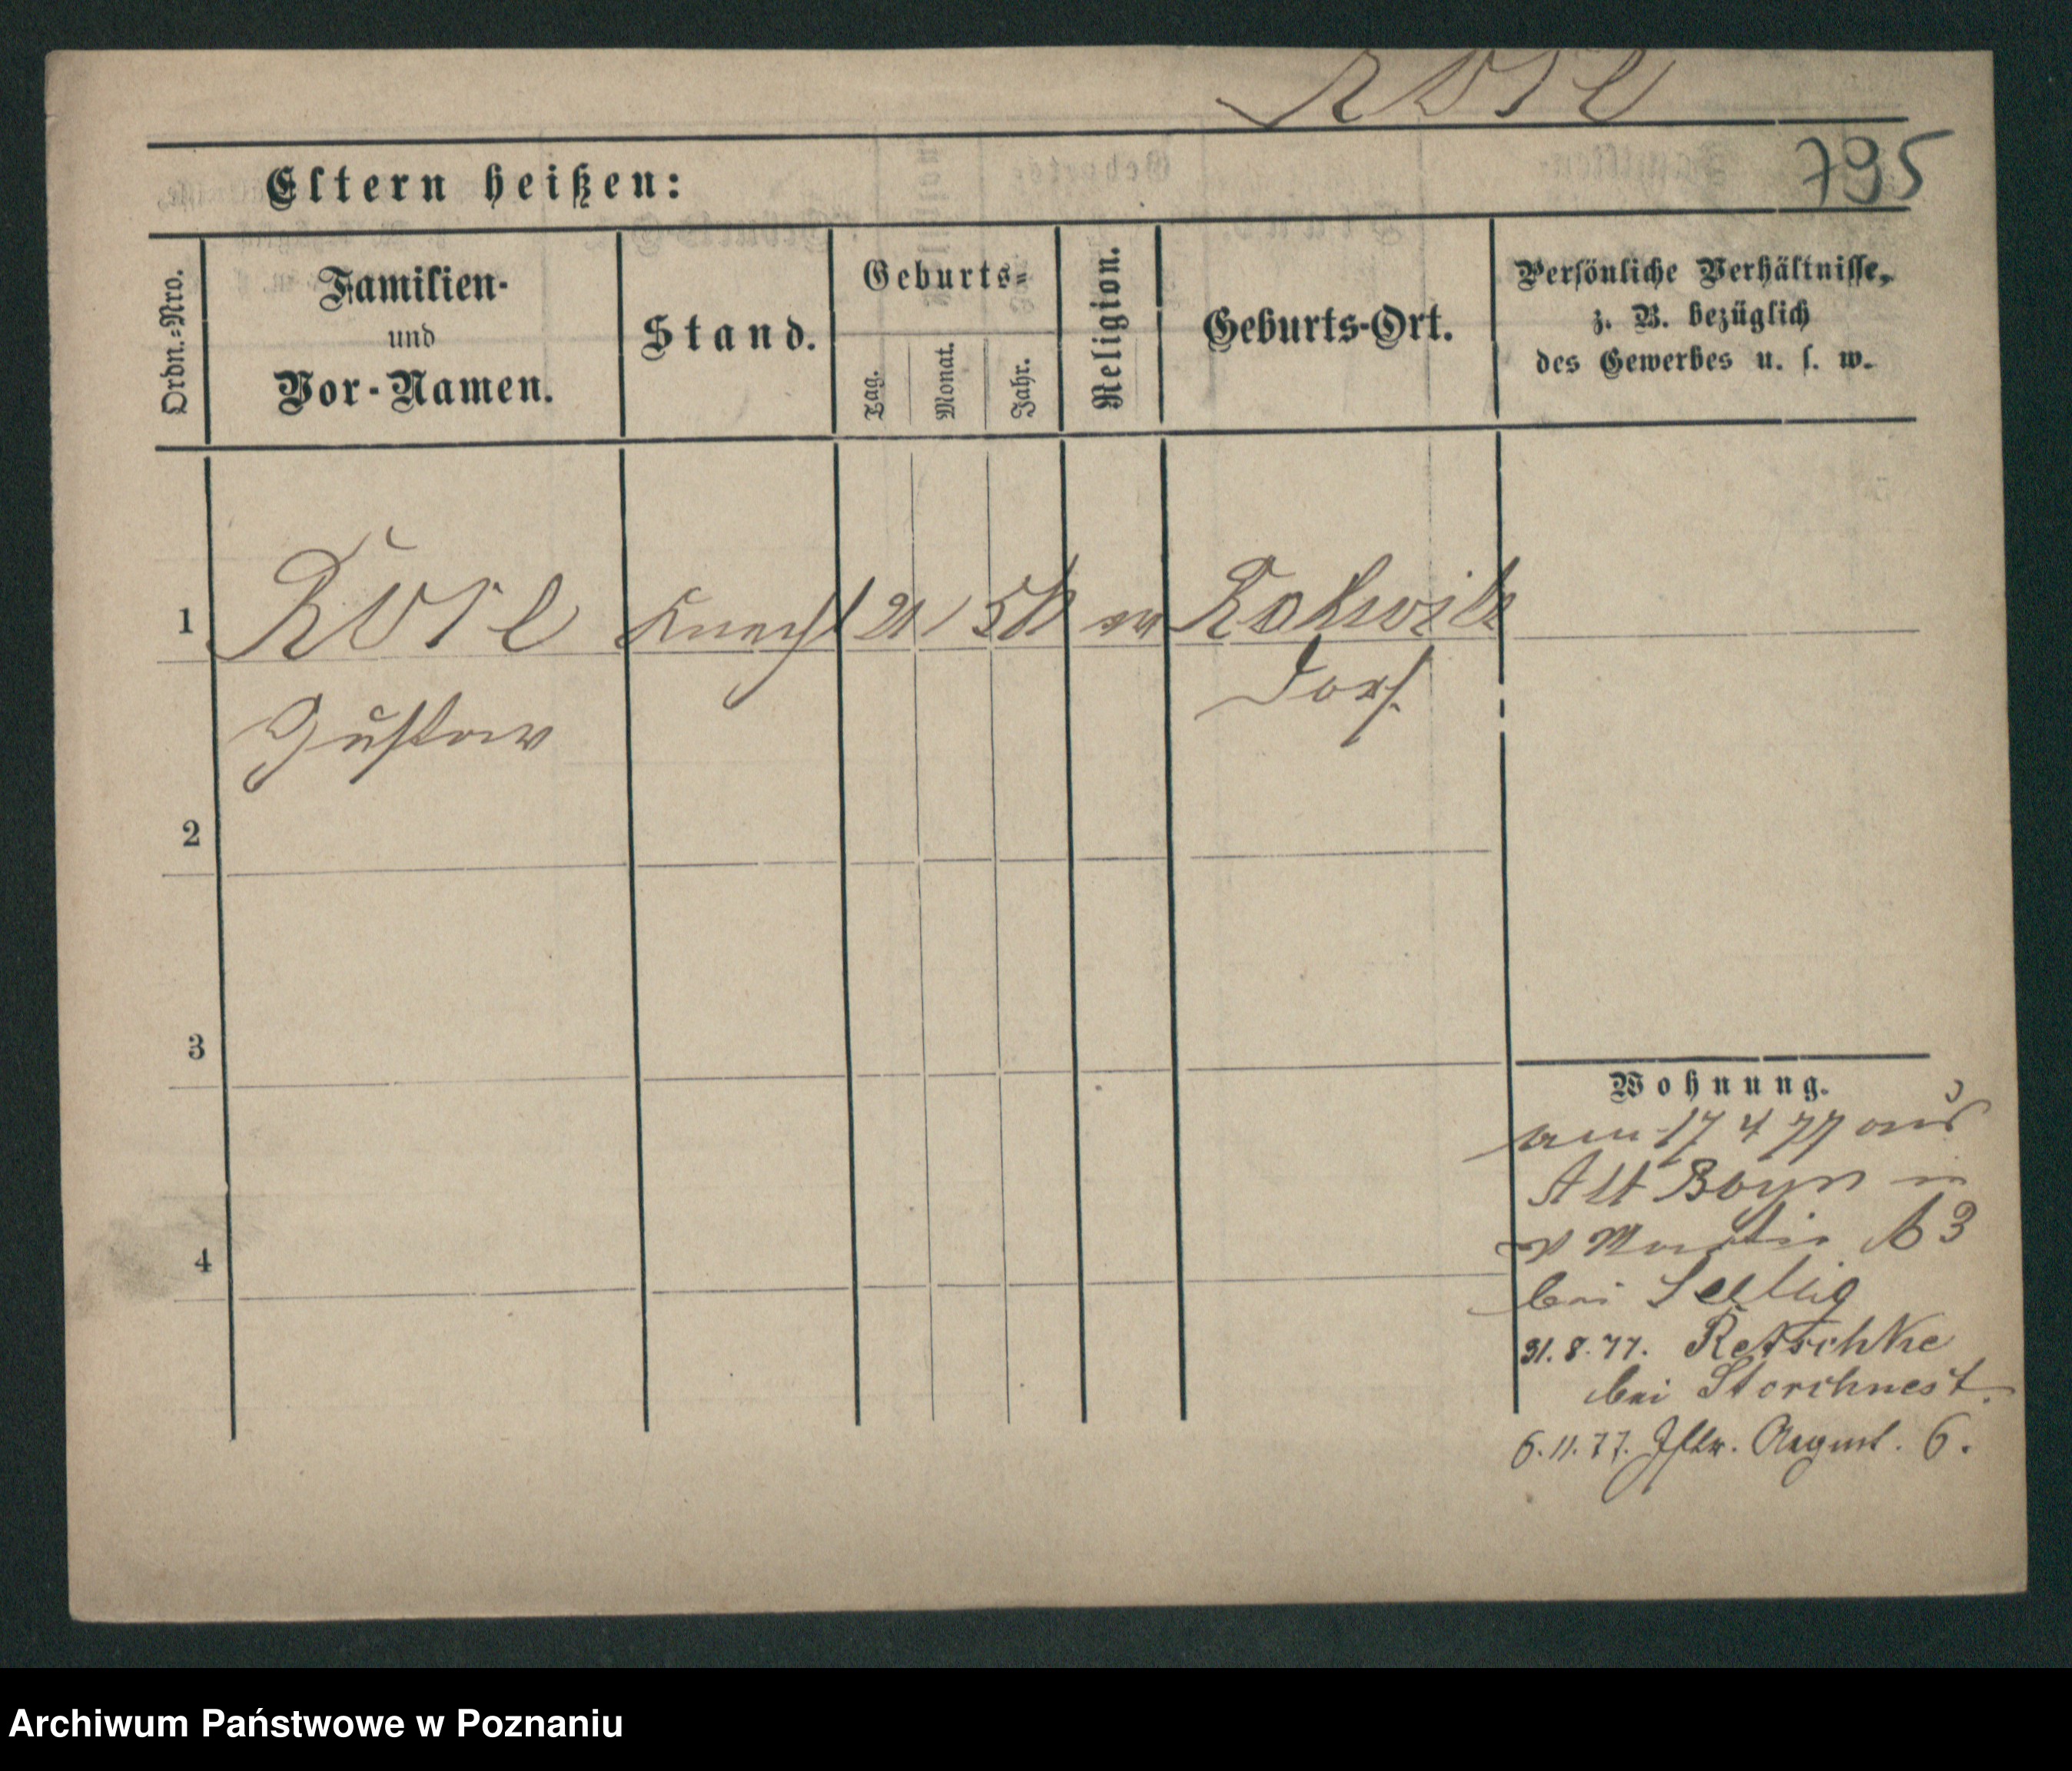 Rose
795
Eltern heißen:
Ordn.=Nro.
Familien-
und
Vor-Namen.
Stand.
Geburts=
Tag.
Monat.
Jahr.
Religion.
Geburts-Ort.
Persönliche Verhältnisse,
z. B. bezüglich
des Gewerbes u. s. w.
1
Rose Knecht
Dorf.
Gustav
2
3
4
Wohnung.
am 17 4 77 aus
Alt Boyn in
Martin 63
bei Seelig
31.8.77. Retschke
bei Storchnest.
6.11.77. 6.
Archiwum Państwowe w Poznaniu